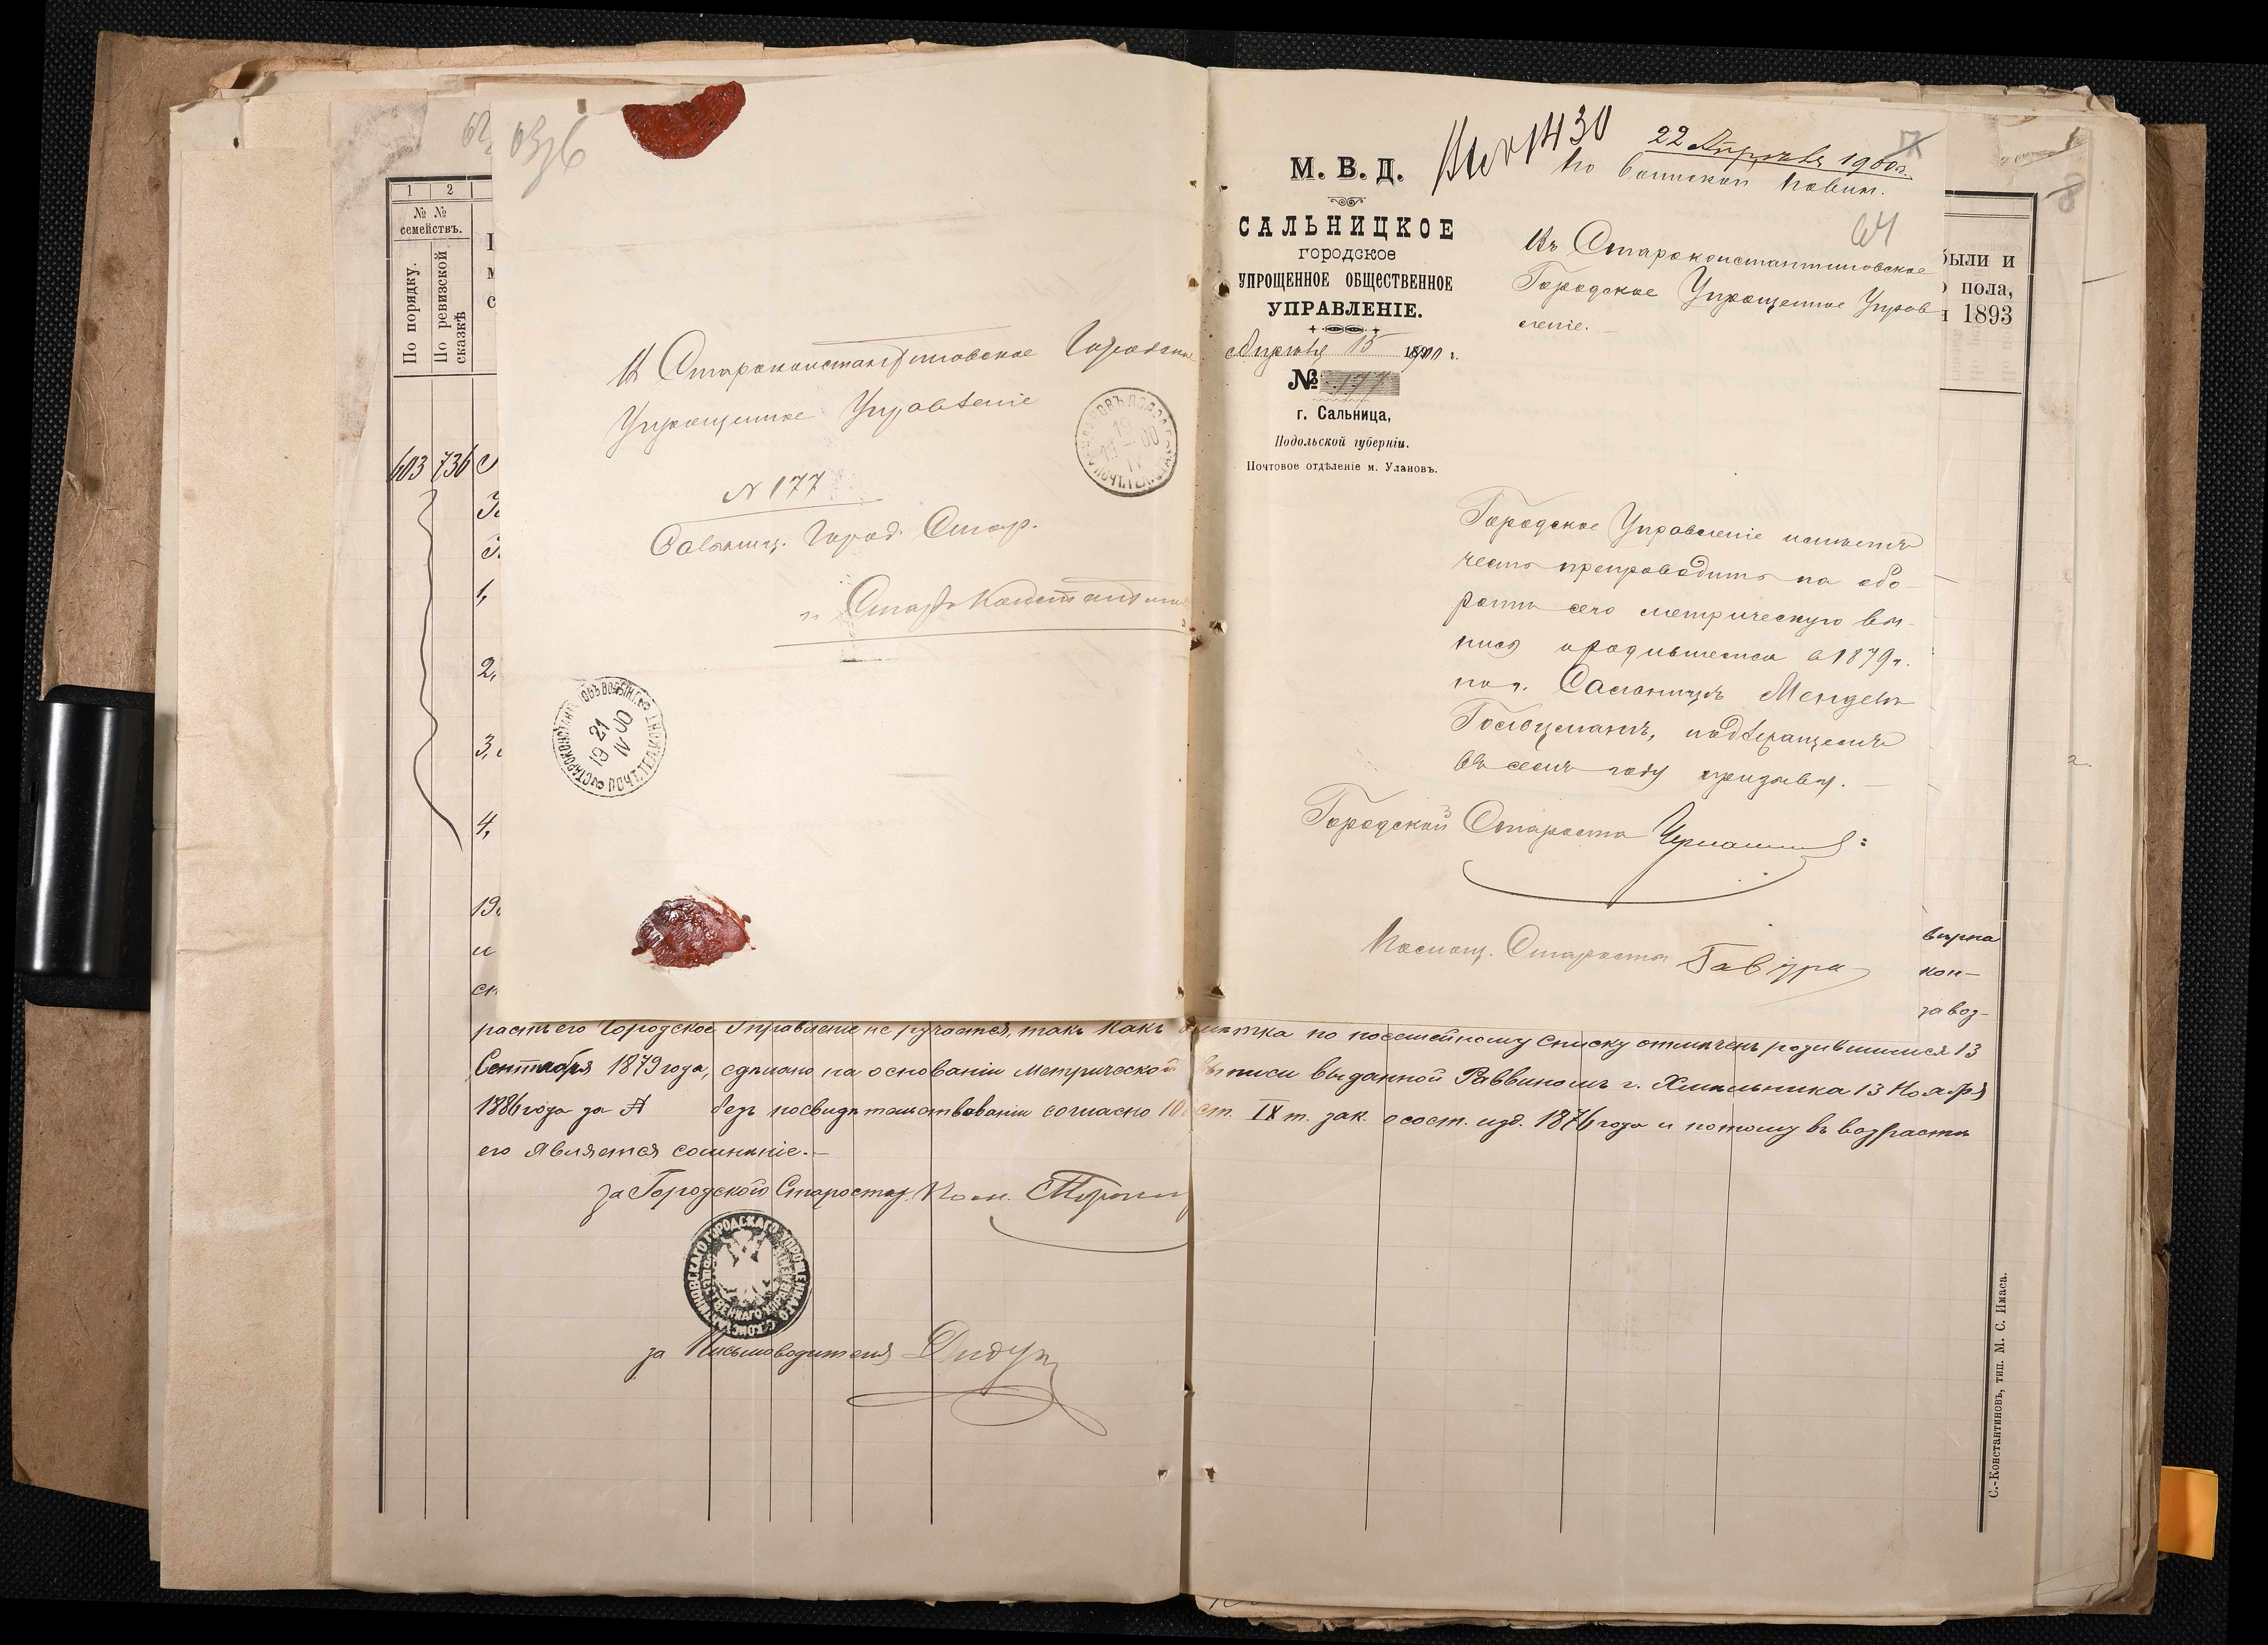 1 2
№ №
семействъ.
По порядку.
По ревизской
сказкѣ
603 736
1,
2,
3,
4,
19
и
Въ Староконстантиновское Городское
Упрощенное Управленіе
N 177
Сальниц. Город. Стар.
г. Старо Константинов
СТАРОКОНСТАНТ
19 21
IV 00
19
IV 00
М. В. Д.
САЛЬНИЦКОЕ
городское
УПРОЩЕННОЕ ОБЩЕСТВЕННОЕ
УПРАВЛЕНІЕ.
Апрѣля 15 1900 г.
№ 177
г. Сальница,
Подольской губерніи.
Почтовое отдѣленіе м. Улановъ.
1430
22 Апрѣля 1900 г.
По воинской повин.
64
Въ Староконстантиновское
Городское Упрощенное Управ
леніе.
Городское Управленіе имѣетъ
честь препроводить на обо-
ротѣ сего метрическую вы-
пись о родившемся в 1879 г.
Мендель
Гольцманъ, подлежащемъ
въ семъ году призыву.
Городской Староста
Помощ. Старосты Гавура
были и
пола,
1893
вирка
кон-
завод-
растъ его Городское Управленіе не ручается, такъ какъ отмѣтка по посемейному списку отмѣченъ родившимся 13
Сентября 1879 года, сдѣлано на основаніи Метрической выписи выданной Раввиномъ г. Хмѣльника 13 Ноября
1886 года за № безъ посвидѣтельствованія согласно ст. IX т. зак. о сост. изд. 1876 года и потому въ возрастѣ
его является сомнѣніе.
за Городского Старосту Пом.
за Письмоводителя Дидук
С.-Константиновъ, тип. М. С. Имаса.